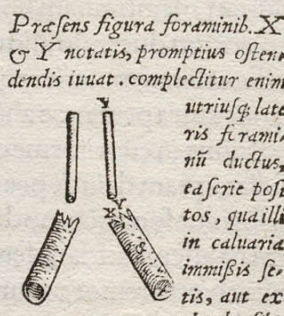 Præsens figura foraminib. X
& Y notatis, promptius osten-
dendis iuuat. complectitur enim
utriusq; late
ris forami-
nũ ductus,
ea serie posi
tos, qua illi
in caluaria
immißis se-
tis, aut ex
Y
Y
X